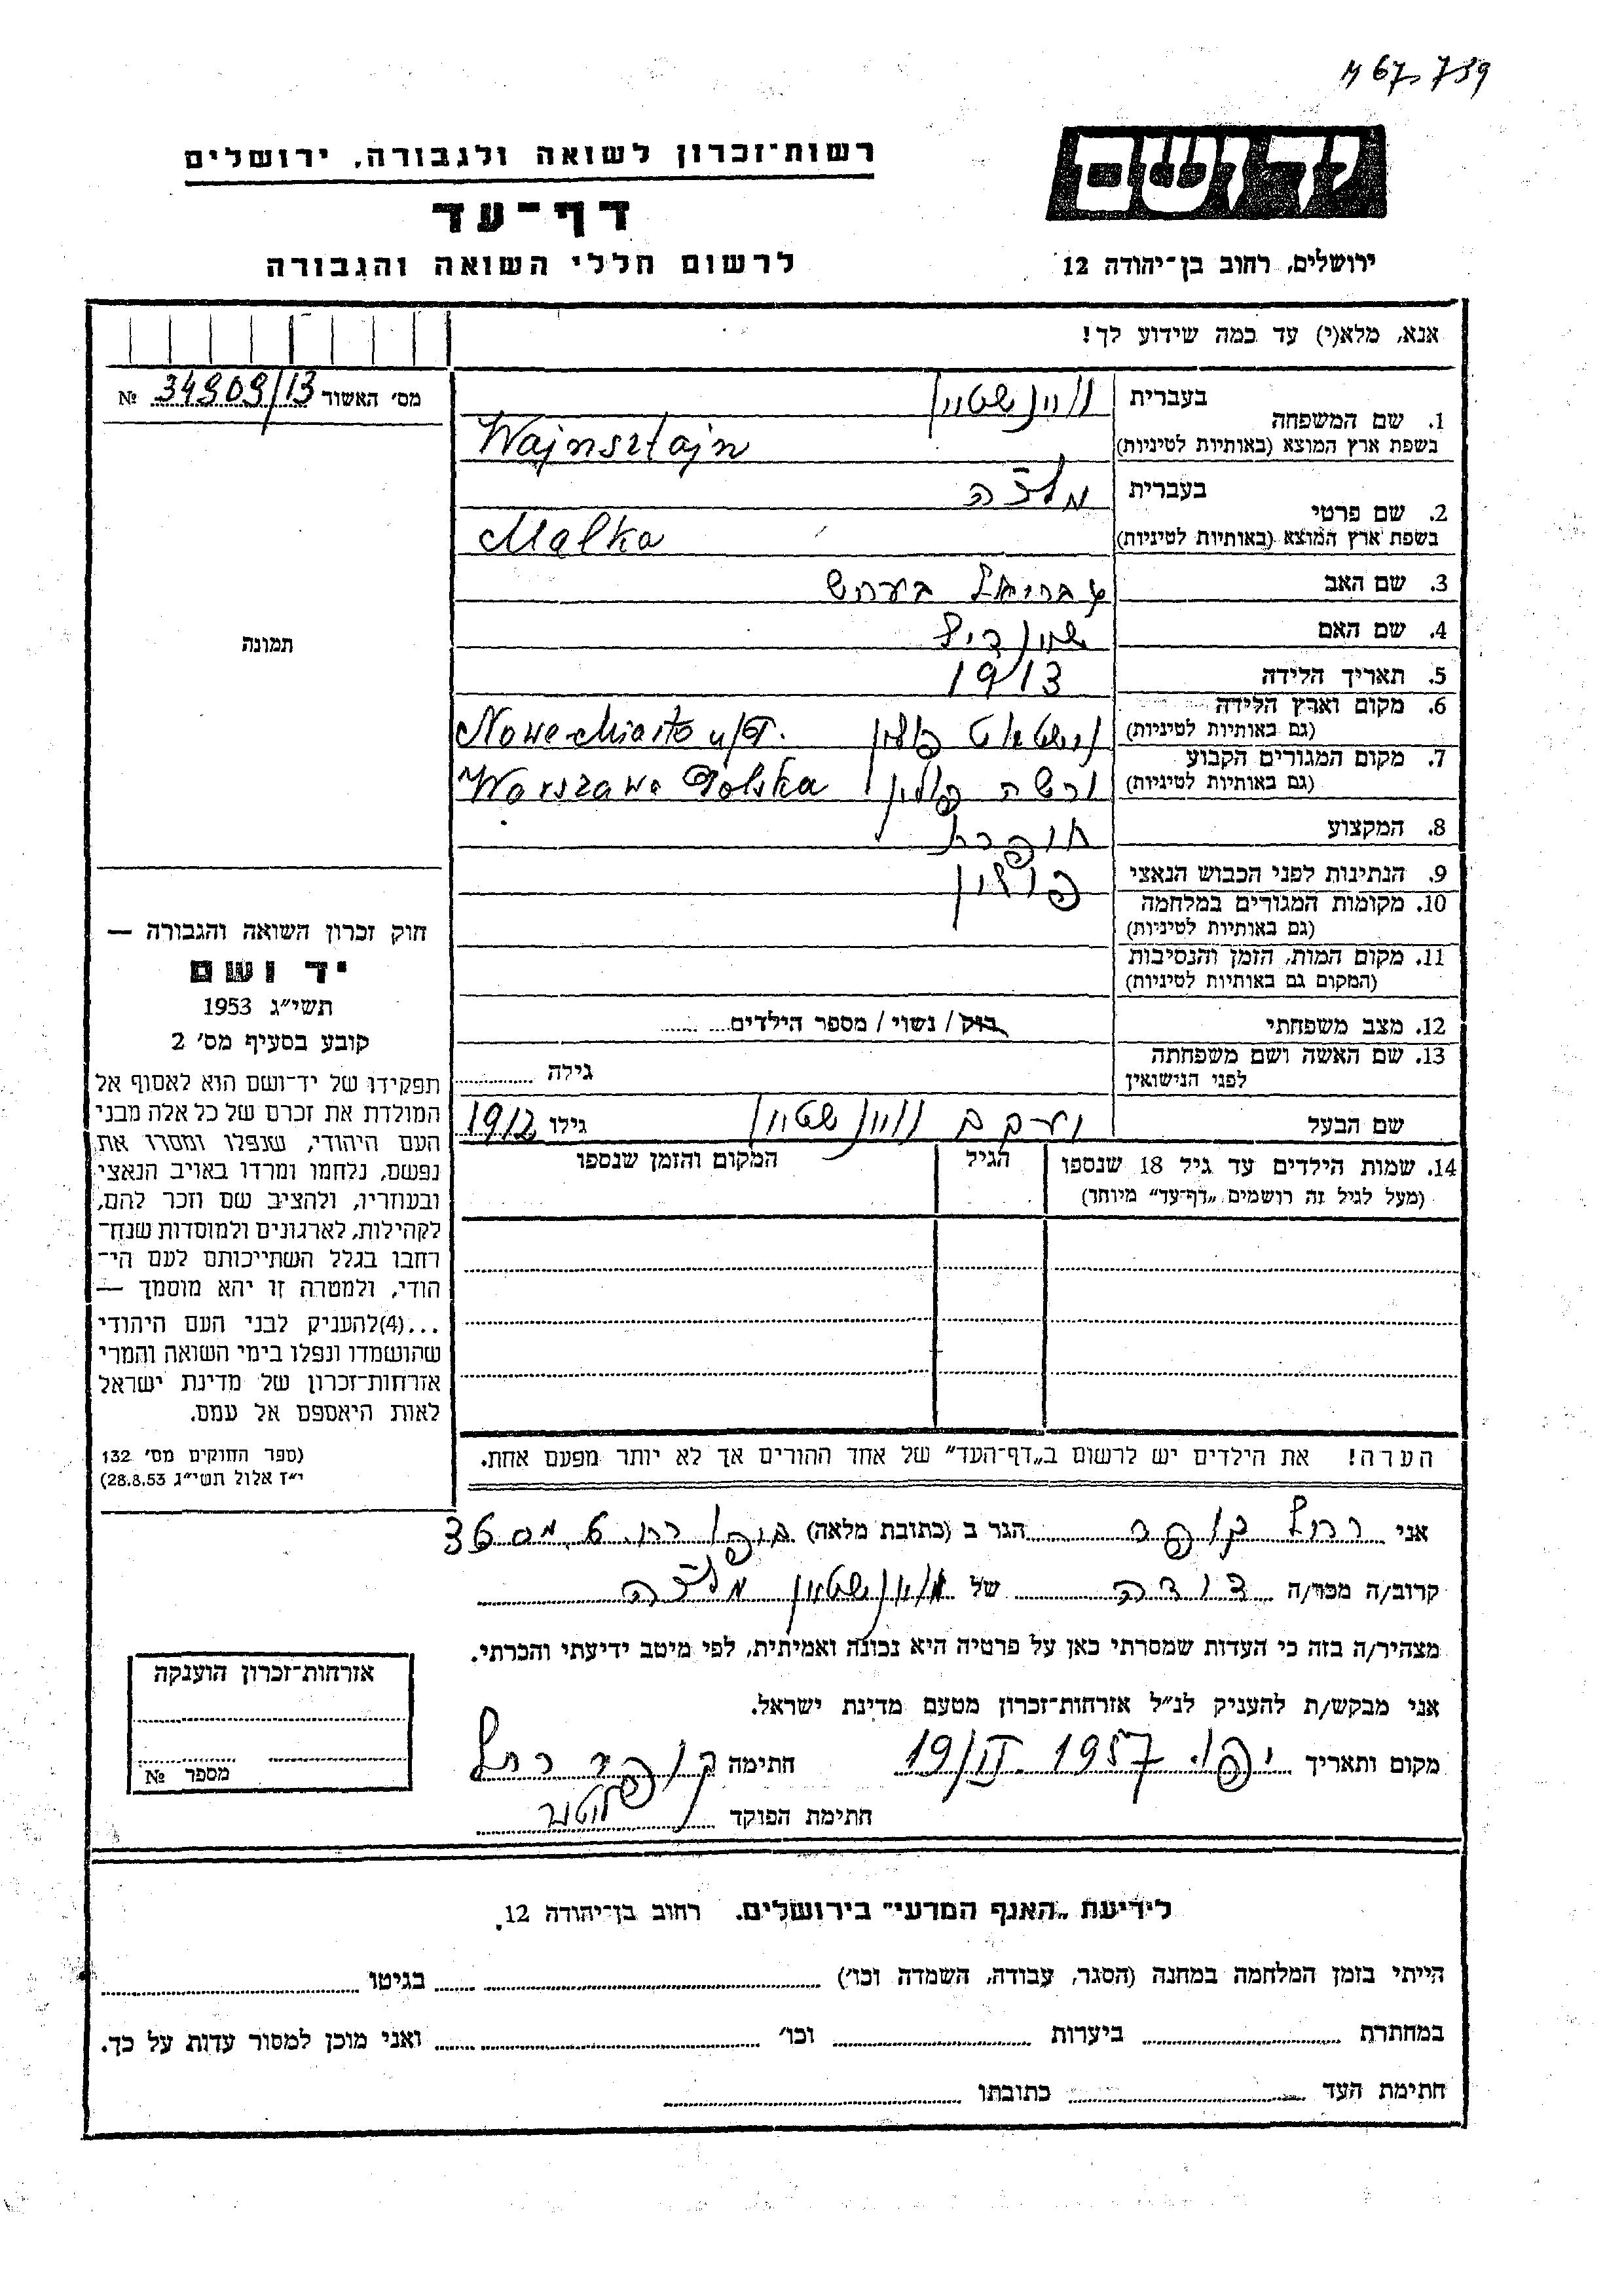 M 67, 739
יד ושם
רשות־זכרון לשואה ולגבורה, ירושלים
דף־עד
ירושלים, רחוב בן־יהודה 12
לרשום חללי השואה והגבורה
אנא, מלא(י) עד כמה שידוע לך!
מס׳ האשור 34909/13 №
1. שם המשפחה
בעברית וויינשטיין
בשפת ארץ המוצא (באותיות לטיניות) Wajnsztajn
2. שם פרטי
בעברית מלכה
בשפת ארץ המוצא (באותיות לטיניות) Malka
3. שם האב
4. שם האם
5. תאריך הלידה 1913
6. מקום וארץ הלידה פולין Nowe-Miasto
(גם באותיות לטיניות)
7. מקום המגורים הקבוע ורשה פולין Warszawa Polska
(גם באותיות לטיניות)
8. המקצוע תופרת
9. הנתינות לפני הכבוש הנאצי פולין
10. מקומות המגורים במלחמה
(גם באותיות לטיניות)
11. מקום המות, הזמן והנסיבות
(המקום גם באותיות לטיניות)
12. מצב משפחתי רוק / נשוי / מספר הילדים
13. שם האשה ושם משפחתה
לפני הנישואין
גילה
שם הבעל יעקב וויינשטיין גילו 1912
14. שמות הילדים עד גיל 18 שנספו הגיל המקום והזמן שנספו
(מעל לגיל זה רושמים „דף־עד״ מיוחד)
הערה! את הילדים יש לרשום ב„דף־העד״ של אחד ההורים אך לא יותר מפעם אחת.
תמונה
חוק זכרון השואה והגבורה —
יד ושם
תשי״ג 1953
קובע בסעיף מס׳ 2
תפקידו של יד־ושם הוא לאסוף אל
המולדת את זכרם של כל אלה מבני
העם היהודי, שנפלו ומסרו את
נפשם, נלחמו ומרדו באויב הנאצי
ובעוזריו, ולהציב שם וזכר להם,
לקהילות, לארגונים ולמוסדות שנח־
רחבו בגלל השתייכותם לעם הי־
הודי, ולמטרה זו יהא מוסמך —
...(4)להעניק לבני העם היהודי
שהושמדו ונפלו בימי השואה והמרי
אזרחות־זכרון של מדינת ישראל
לאות היאספם אל עמם.
(ספר החוקים מס׳ 132
י״ז אלול תשי״ג 28.8.53)
אני רחל קופר הגר ב (כתובת מלאה)
קרוב/ה מכר/ה דודה של וויינשטיין מלכה
מצהיר/ה בזה כי העדות שמסרתי כאן על פרטיה היא נכונה ואמיתית, לפי מיטב ידיעתי והכרתי.
אני מבקש/ת להעניק לנ״ל אזרחות־זכרון מטעם מדינת ישראל.
מקום ותאריך יפו 19/II 1957 חתימה קופר רחל
חתימת הפוקד
אזרחות־זכרון הוענקה
מספר №
לידיעת „האגף המדעי״ בירושלים. רחוב בן־יהודה 12.
הייתי בזמן המלחמה במחנה (הסגר, עבודה, השמדה וכו׳) בגיטו
במחתרת ביערות וכו׳ ואני מוכן למסור עדות על כך.
חתימת העד כתובתו